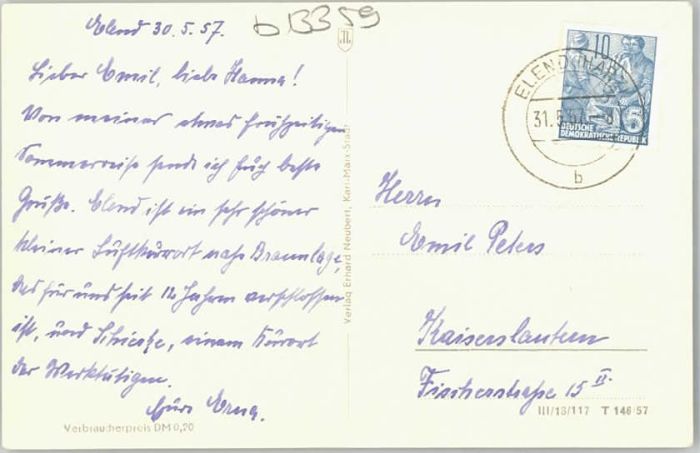 Elend 30.5.57.
b 13359
Lieber Emil, liebe Hanna!
Von meiner etwas frühzeitigen
Sommerreise sende ich Euch beste
Grüße. Elend ist ein sehr schöner
kleiner Luftkurort nahe Braunlage,
das für uns seit 12 Jahren verschlossen
ist, und Schierke, einem Kurort
der Werktätigen.
Eure Erna.
Verbraucherpreis DM 0,20
Verlag Erhard Neubert, Karl-Marx-Stadt
ELEND (HARZ)
31.5.57
b
10
DEUTSCHE
DEMOKRATISCHE REPUBLIK
Herrn
Emil Peters
Kaiserslautern
Fischerstraße 15 II.
III/18/117 T 146/57